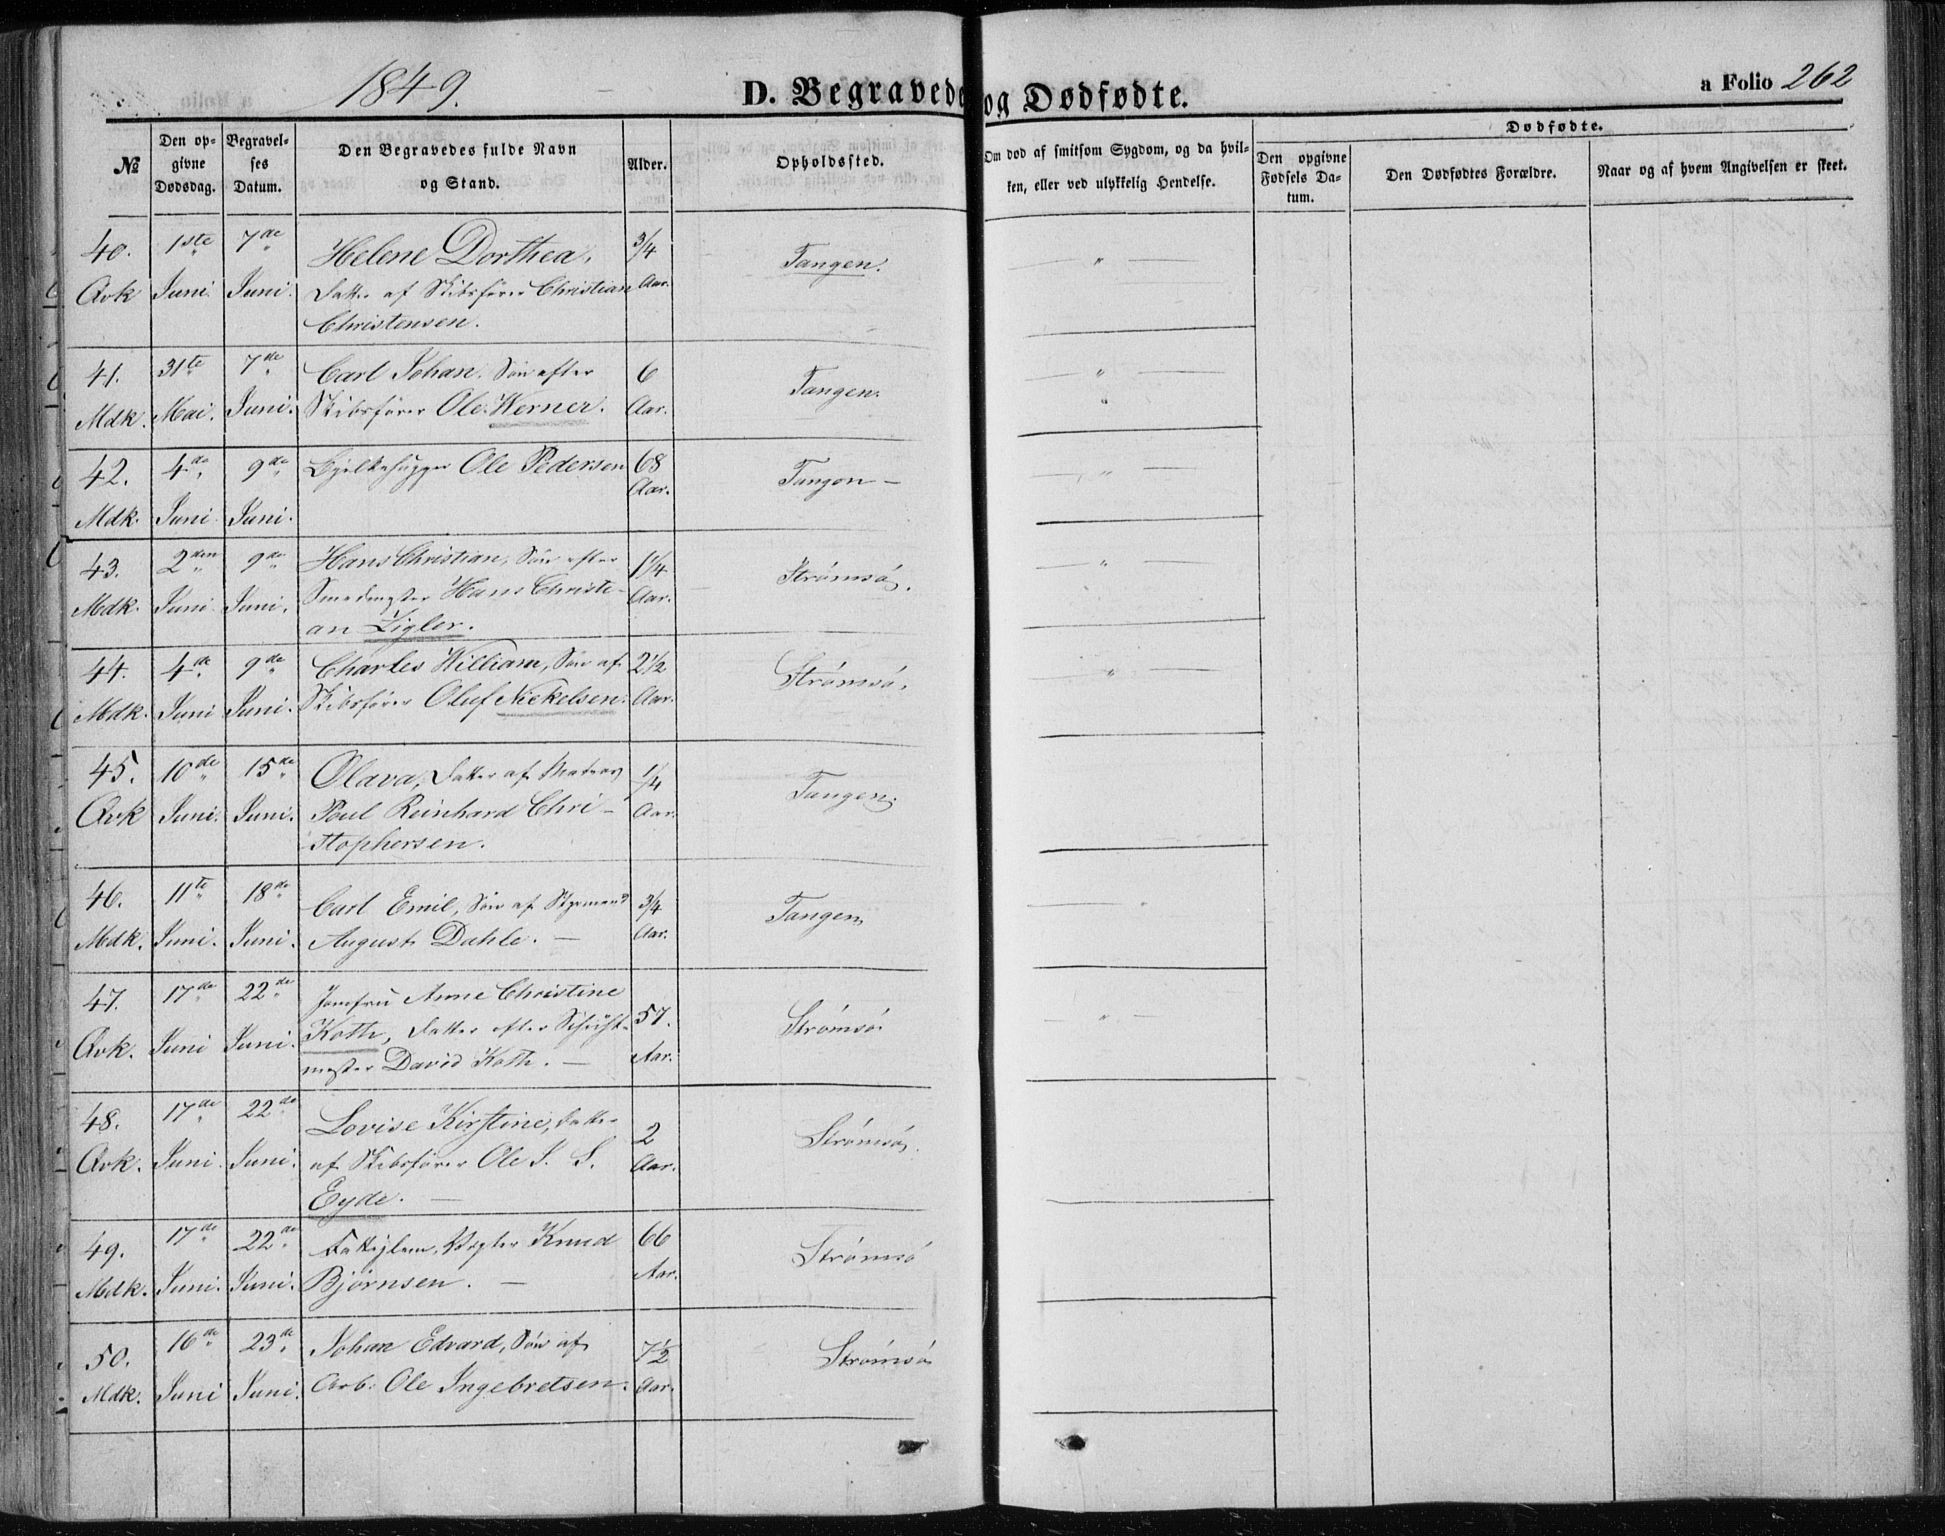 1849.
D. Begravede og Dødfødte.
a Folio 262
№
Den opgivne Dødsdag.
Begravelses Datum.
Den Begravedes fulde Navn og Stand.
Alder.
Opholdssted.
Om død af smitsom Sygdom, og da hvilken, eller ved ulykkelig Hendelse.
Dødfødte.
Den opgivne Fødsels Datum.
Den Dødfødtes Forældre.
Naar og af hvem Angivelsen er skeet.
40. 1ste 7de Helene Dorthea, 3/4 Tangen. — " —
Qvk Juni. Juni. Datter af Skibsfører Christian Aar.
Christensen.
41. 31te 7de Carl Johan. Søn efter 6 Tangen. — " —
Mdk. Mai. Juni. Skibsfører Ole Werner. Aar. "
42. 4de 9de Bjelkehugger Ole Pedersen 68 Tangen — — " —
Mdk. Juni. Juni. Aar.
43. 2den 9de Hans Christian, Søn efter 1 1/4 Strømsø. — " —
Mdk. Juni. Juni. Smedmester Hans Christi- Aar.
an Zigler.
44. 4de 9de Charles William, Søn af 2 1/2 Strømsø. — " —
Mdk. Juni Juni. Skibsfører Oluf Nickelsen. Aar.
45. 10de 15de Olava, Datter af Matros 1/4 Tangen.
Qvk Juni. Juni. Poul Reinhard Chri- Aar.
stophersen.
46. 11te 18de Carl Emil, Søn af Styrmand 3/4 Tangen
Mdk. Juni. Juni. August Dahle. — Aar.
47. 17de 22de Jomfru Anne Christine 57. Strømsø. — " —
Qvk. Juni Juni. Koth, Datter efter
mester David Koth. — Aar.
48. 17de 22de Lovise Kirstine, Datter 2 Strømsø.
Qvk. Juni. Juni. af Skibsfører Ole J. S. Aar.
Eyde. —
49. 17de 22de Fattiglem, Knud 66 Strømsø
Mdk. Juni. Juni. Bjørnsen. — Aar.
50. 16de 23de Johan Edvard, Søn af 7 1/2 Strømsø
Mdk. Juni Juni. Arb: Ole Ingebretsen. Aar.